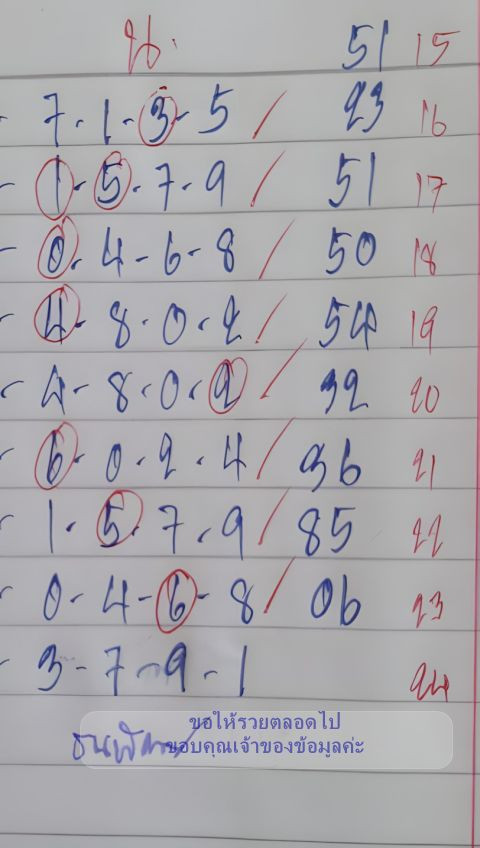 น. 51 15
7-1-3-5 / 23 16
1-5-7-9 / 51 17
0-4-6-8 / 50 18
4-8-0-2 / 54 19
4-8-0-2 / 32 20
6-0-2-4 / 36 21
1-5-7-9 / 85 22
0-4-6-8 / 06 23
3-7-9-1 24
ขอให้รวยตลอดไป
ขอบคุณเจ้าของข้อมูลค่ะ